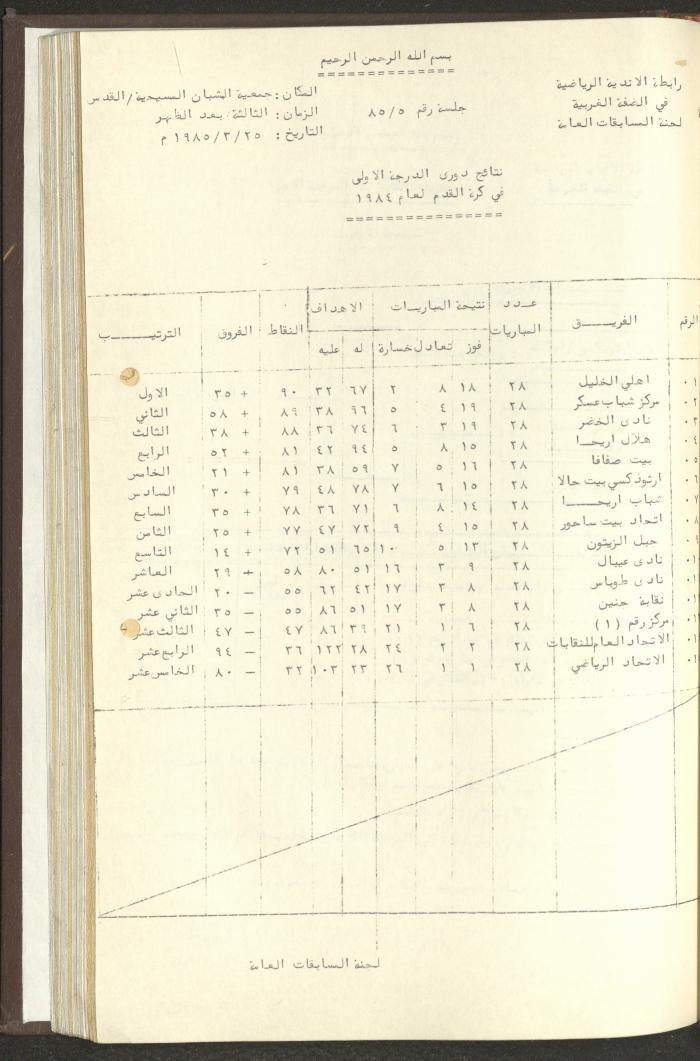 بسم الله الرحمن الرحيم
رابطة الاندية الرياضية
في الضفة الغربية
لجنة المسابقات العامة
جلسة رقم ٨٥/٥
المكان : جمعية الشبان المسيحية/القدس
الزمان : الثالثة بعد الظهر
التاريخ : ١٩٨٥/٣/٢٥ م
نتائج دورى الدرجة الاولى
في كرة القدم لعام ١٩٨٤
الرقم الفريق عدد المباريات نتيجة المباريات الاهداف النقاط الفروق الترتيب
فوز تعادل خسارة له عليه
اهلي الخليل ٢٨ ١٨ ٨ ٢ ٦٧ ٣٢ ٩٠ + ٣٥ الاول
مركز شباب عسكر ٢٨ ١٩ ٤ ٥ ٩٦ ٣٨ ٨٩ + ٥٨ الثاني
نادى الخضر ٢٨ ١٩ ٣ ٦ ٧٤ ٣٦ ٨٨ + ٣٨ الثالث
هلال اريحا ٢٨ ١٥ ٨ ٥ ٩٤ ٤٢ ٨١ + ٥٢ الرابع
بيت صفافا ٢٨ ١٦ ٥ ٧ ٥٩ ٣٨ ٨١ + ٢١ الخامس
ارثوذكسي بيت جالا ٢٨ ١٥ ٦ ٧ ٧٨ ٤٨ ٧٩ + ٣٠ السادس
شباب اريحا ٢٨ ١٤ ٨ ٦ ٧١ ٣٦ ٧٨ + ٣٥ السابع
اتحاد بيت ساحور ٢٨ ١٥ ٤ ٩ ٧٢ ٤٧ ٧٧ + ٢٥ الثامن
جبل الزيتون ٢٨ ١٣ ٥ ١٠ ٦٥ ٥١ ٧٢ + ١٤ التاسع
نادى عيبال ٢٨ ٩ ٣ ١٦ ٥١ ٨٠ ٥٨ – ٢٩ العاشر
نادى طوباس ٢٨ ٨ ٣ ١٧ ٤٢ ٦٢ ٥٥ – ٢٠ الحادى عشر
نقابة جنين ٢٨ ٨ ٣ ١٧ ٥١ ٨٦ ٥٥ – ٣٥ الثاني عشر
مركز رقم (١) ٢٨ ٦ ١ ٢١ ٣٩ ٨٦ ٤٧ – ٤٧ الثالث عشر
الاتحاد العام للنقابات ٢٨ ٢ ٢ ٢٤ ٢٨ ١٢٢ ٣٦ – ٩٤ الرابع عشر
الاتحاد الرياضي ٢٨ ١ ١ ٢٦ ٢٣ ١٠٣ ٣٢ – ٨٠ الخامس عشر
لجنة المسابقات العامة